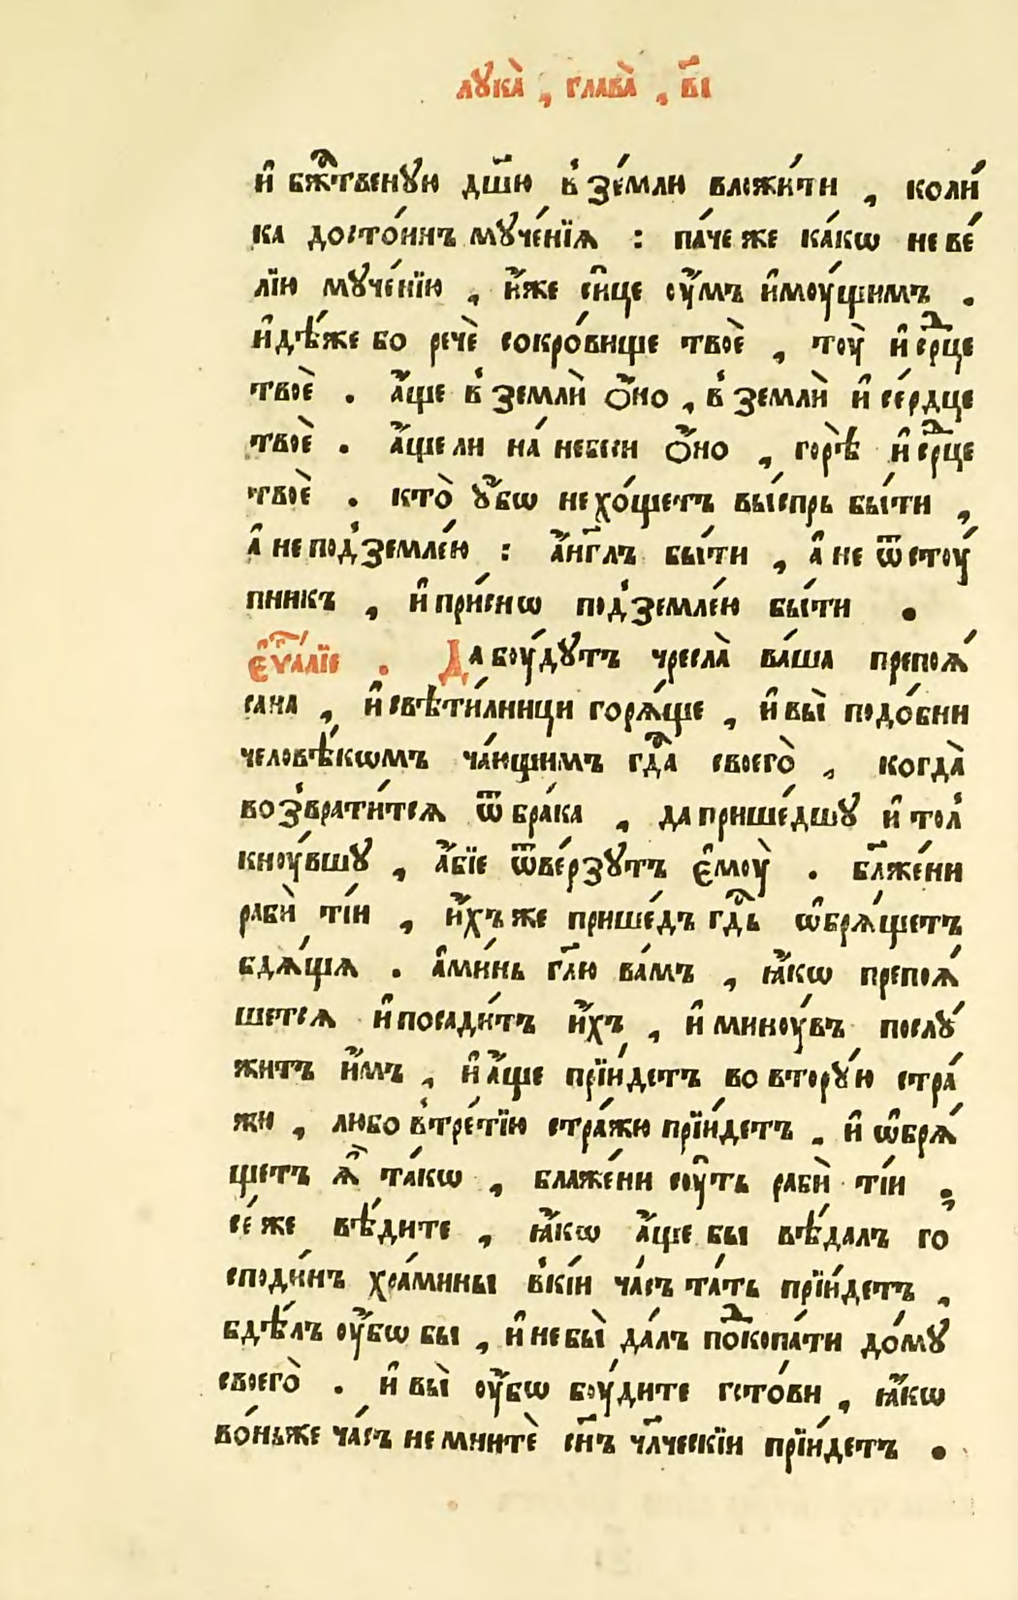 лꙋка̀ , глава̀ , в҃і
и҆ бжⷭ҇твенꙋю дш҃ю в̾ зе́млю вложи́ти , коли́
ка досто́инъ мꙋче́нїѧ : па́че же ка́кѡ не ве́
лїю мꙋче́нїю , и҆́же си́це оу҆́мъ и҆мꙋ́щимъ .
и҆дѣ́же бо речѐ сокро́вище твоѐ , тоу̀ и҆ срⷣце
твоѐ . а҆́ще в̾ землѝ ѻ҆́но , в̾ землѝ и҆ се́рдце
твоѐ . а҆́ще ли на́ небеси ѻ҆́но , горѣ̀ и҆ срⷣце
твоѐ . кто̀ ꙋ҆́бѡ не хо́щетъ вы́спрь бы́ти ,
а҆ не под̾ земле́ю : а҆́нг҃лъ бы́ти , а҆ не ѿстоу́
пникъ , и҆ при́снѡ под̾ земле́ю бы́ти .
є҆ѵⷢ҇а́лїе . Да боу́дꙋтъ чресла̀ ва́ша препоѧ́
сана , и҆ свѣти́лницы горѧ́ще , и҆ вы̀ подо́бни
человѣ́кѡмъ ча́ющимъ гдⷭ҇а своего̀ , когда̀
возврати́тсѧ ѿ бра́ка , да прише́дшꙋ и҆ тол̾
кноу́вшꙋ , а҆́бїе ѿве́рзꙋтъ є҆моу̀ . бл҃же́ни
рабѝ ті́и , и҆́хъ же прише́дъ гдⷭ҇ь ѡ҆брѧ́щетъ
бдѧ́щѧ . а҆ми́нь гл҃ю ва́мъ , ꙗ҆́кѡ препоѧ́
шетсѧ и҆ посади́тъ и҆́хъ , и҆ миноу́въ послꙋ́
житъ и҆́мъ , и҆ а҆́ще прїи́детъ во вторꙋ́ю стра́
жꙋ , любо в̾ тре́тїю стра́жю прїи́детъ , и҆ ѡ҆брѧ́
щетъ ѧ҆̀ та́кѡ , блаже́ни соу́ть рабѝ ті́и ,
се́ же вѣ́дите , ꙗ҆́кѡ а҆́ще бы вѣ́далъ го
споди́нъ хра́мины в̾ кі́и ча́съ та́ть прїи́детъ ,
бдѣ́лъ оу҆́бѡ бы , и҆ не бы̀ да́лъ поⷣкопа́ти до́мꙋ
своего̀ . и҆ вы̀ оу҆́бѡ боу́дите гото́ви , ꙗ҆́кѡ
во́ньже ча́съ не мнитѐ сн҃ъ чл҃ческїи прїи́детъ .